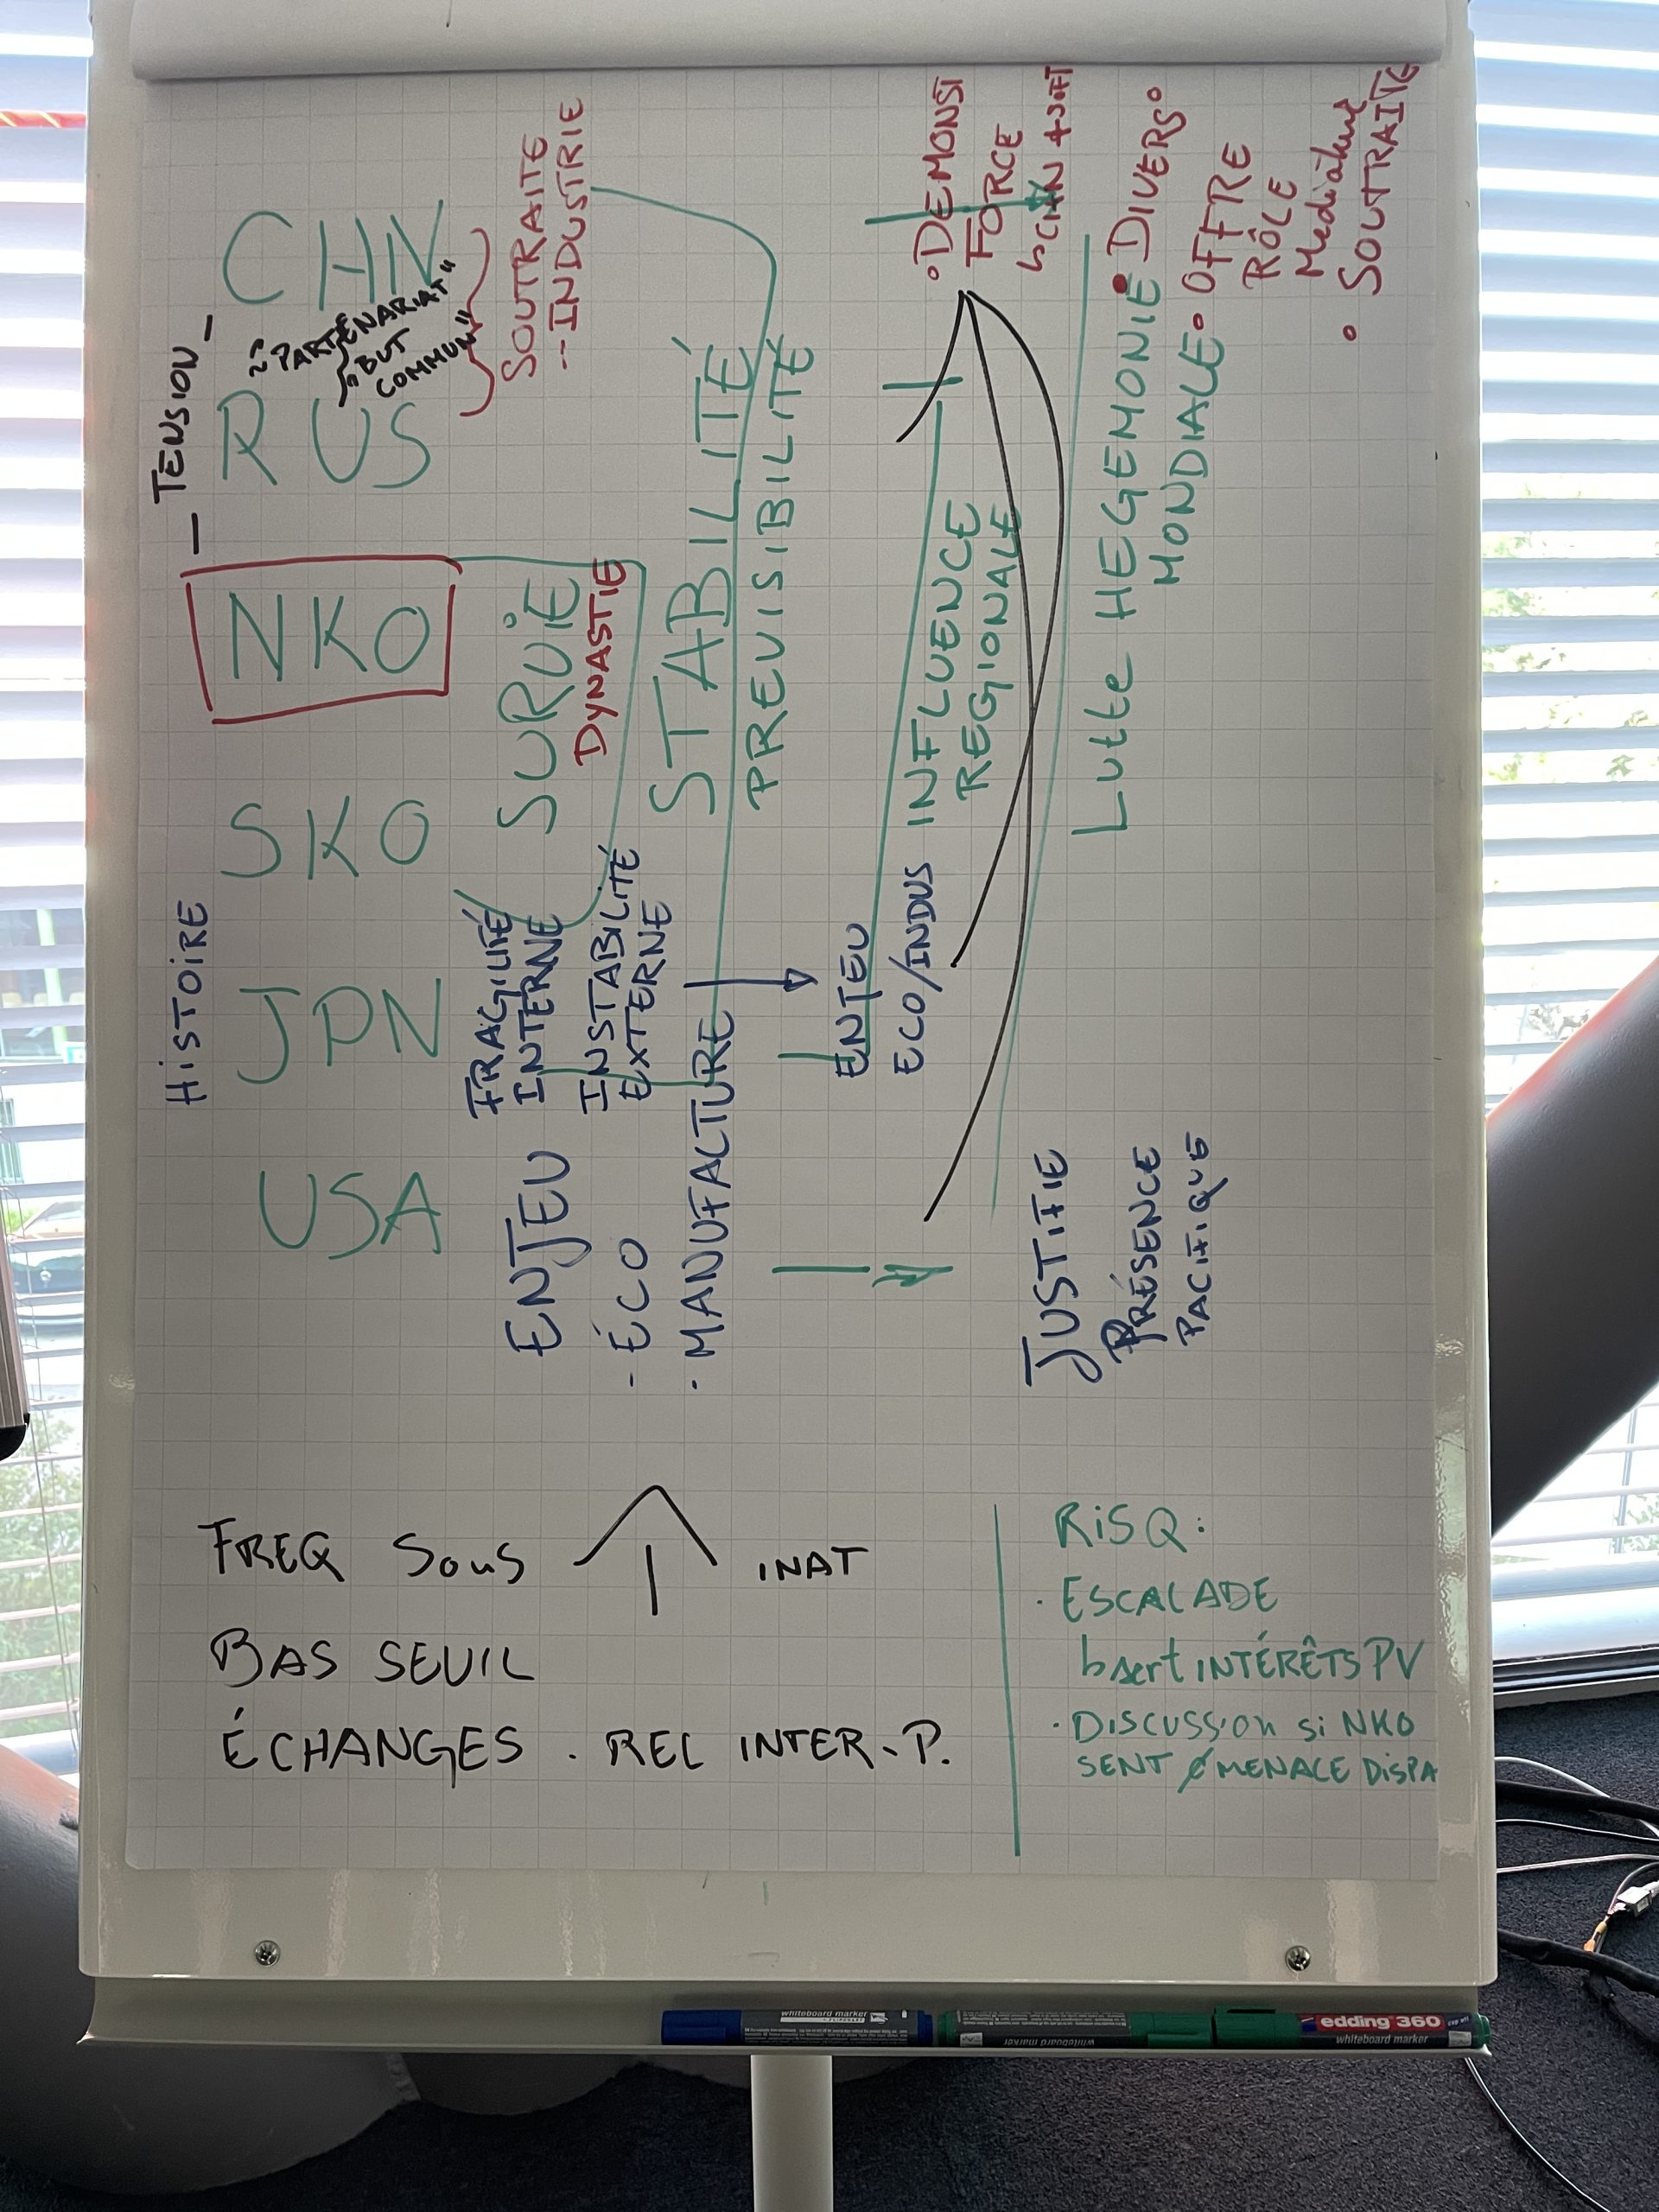 HISTOIRE
— TENSION —
USA
JPN
SKO
NKO
RUS
CHN
"PARTENARIAT"
"BUT
COMMUN"
SOUTRAITE
-- INDUSTRIE
ENJEU
- ÉCO
· MANUFACTURE
FRAGILITÉ
INTERNE
INSTABILITÉ
EXTERNE
SURVIE
DYNASTIE
STABILITÉ
PREVISIBILITÉ
ENJEU
ECO/INDUS
INFLUENCE
REGIONALE
• DEMONST
FORCE
↳ CHN + SOFT
Lutte HEGEMONIE
MONDIALE
• DIVERS
• OFFRE
RÔLE
Mediateur
• SOUTRAITE
JUSTIFIE
PRÉSENCE
PACIFIQUE
FREQ SOUS INAT
BAS SEUIL
ÉCHANGES . REL INTER-P.
RISQ:
· ESCALADE
INTÉRÊTS PV
· DISCUSSION si NKO
SENT Ø MENACE DISPA
whiteboard marker
whiteboard marker
edding 360
whiteboard marker